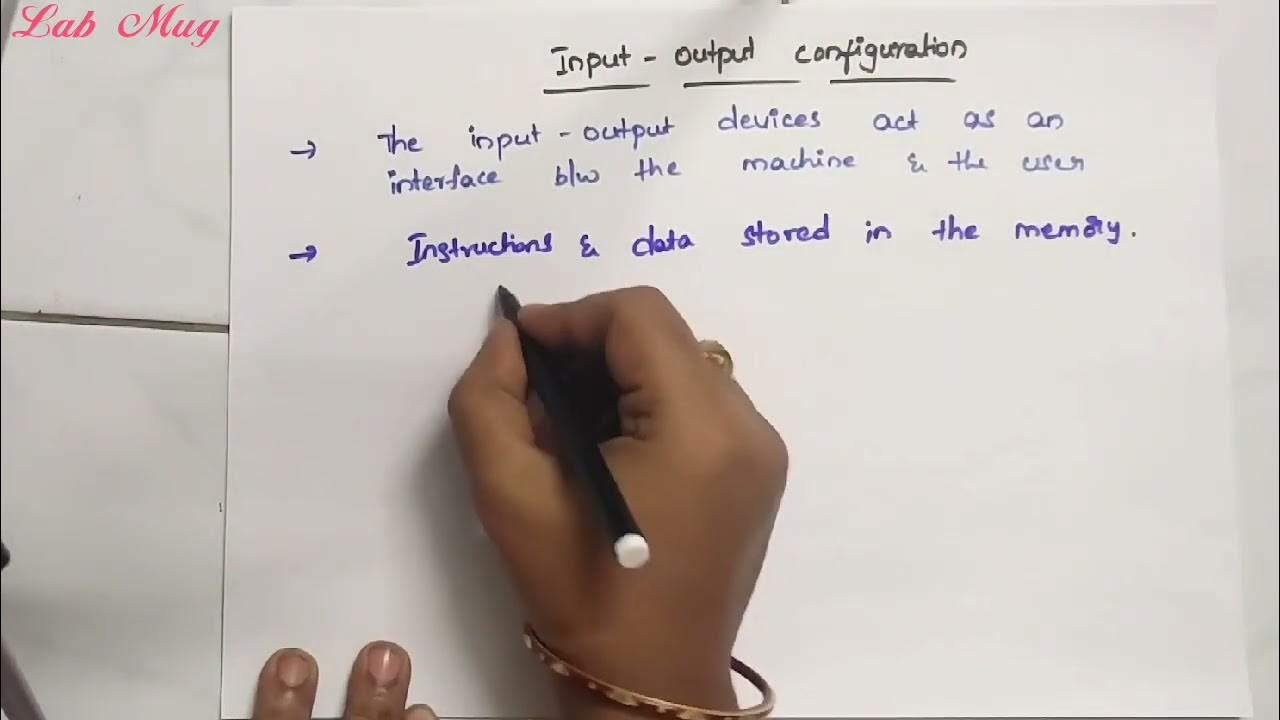 Lab Mug
Input - Output configuration
→ The input - output devices act as an
interface b/w the machine & the user
→ Instructions & data stored in the memory.